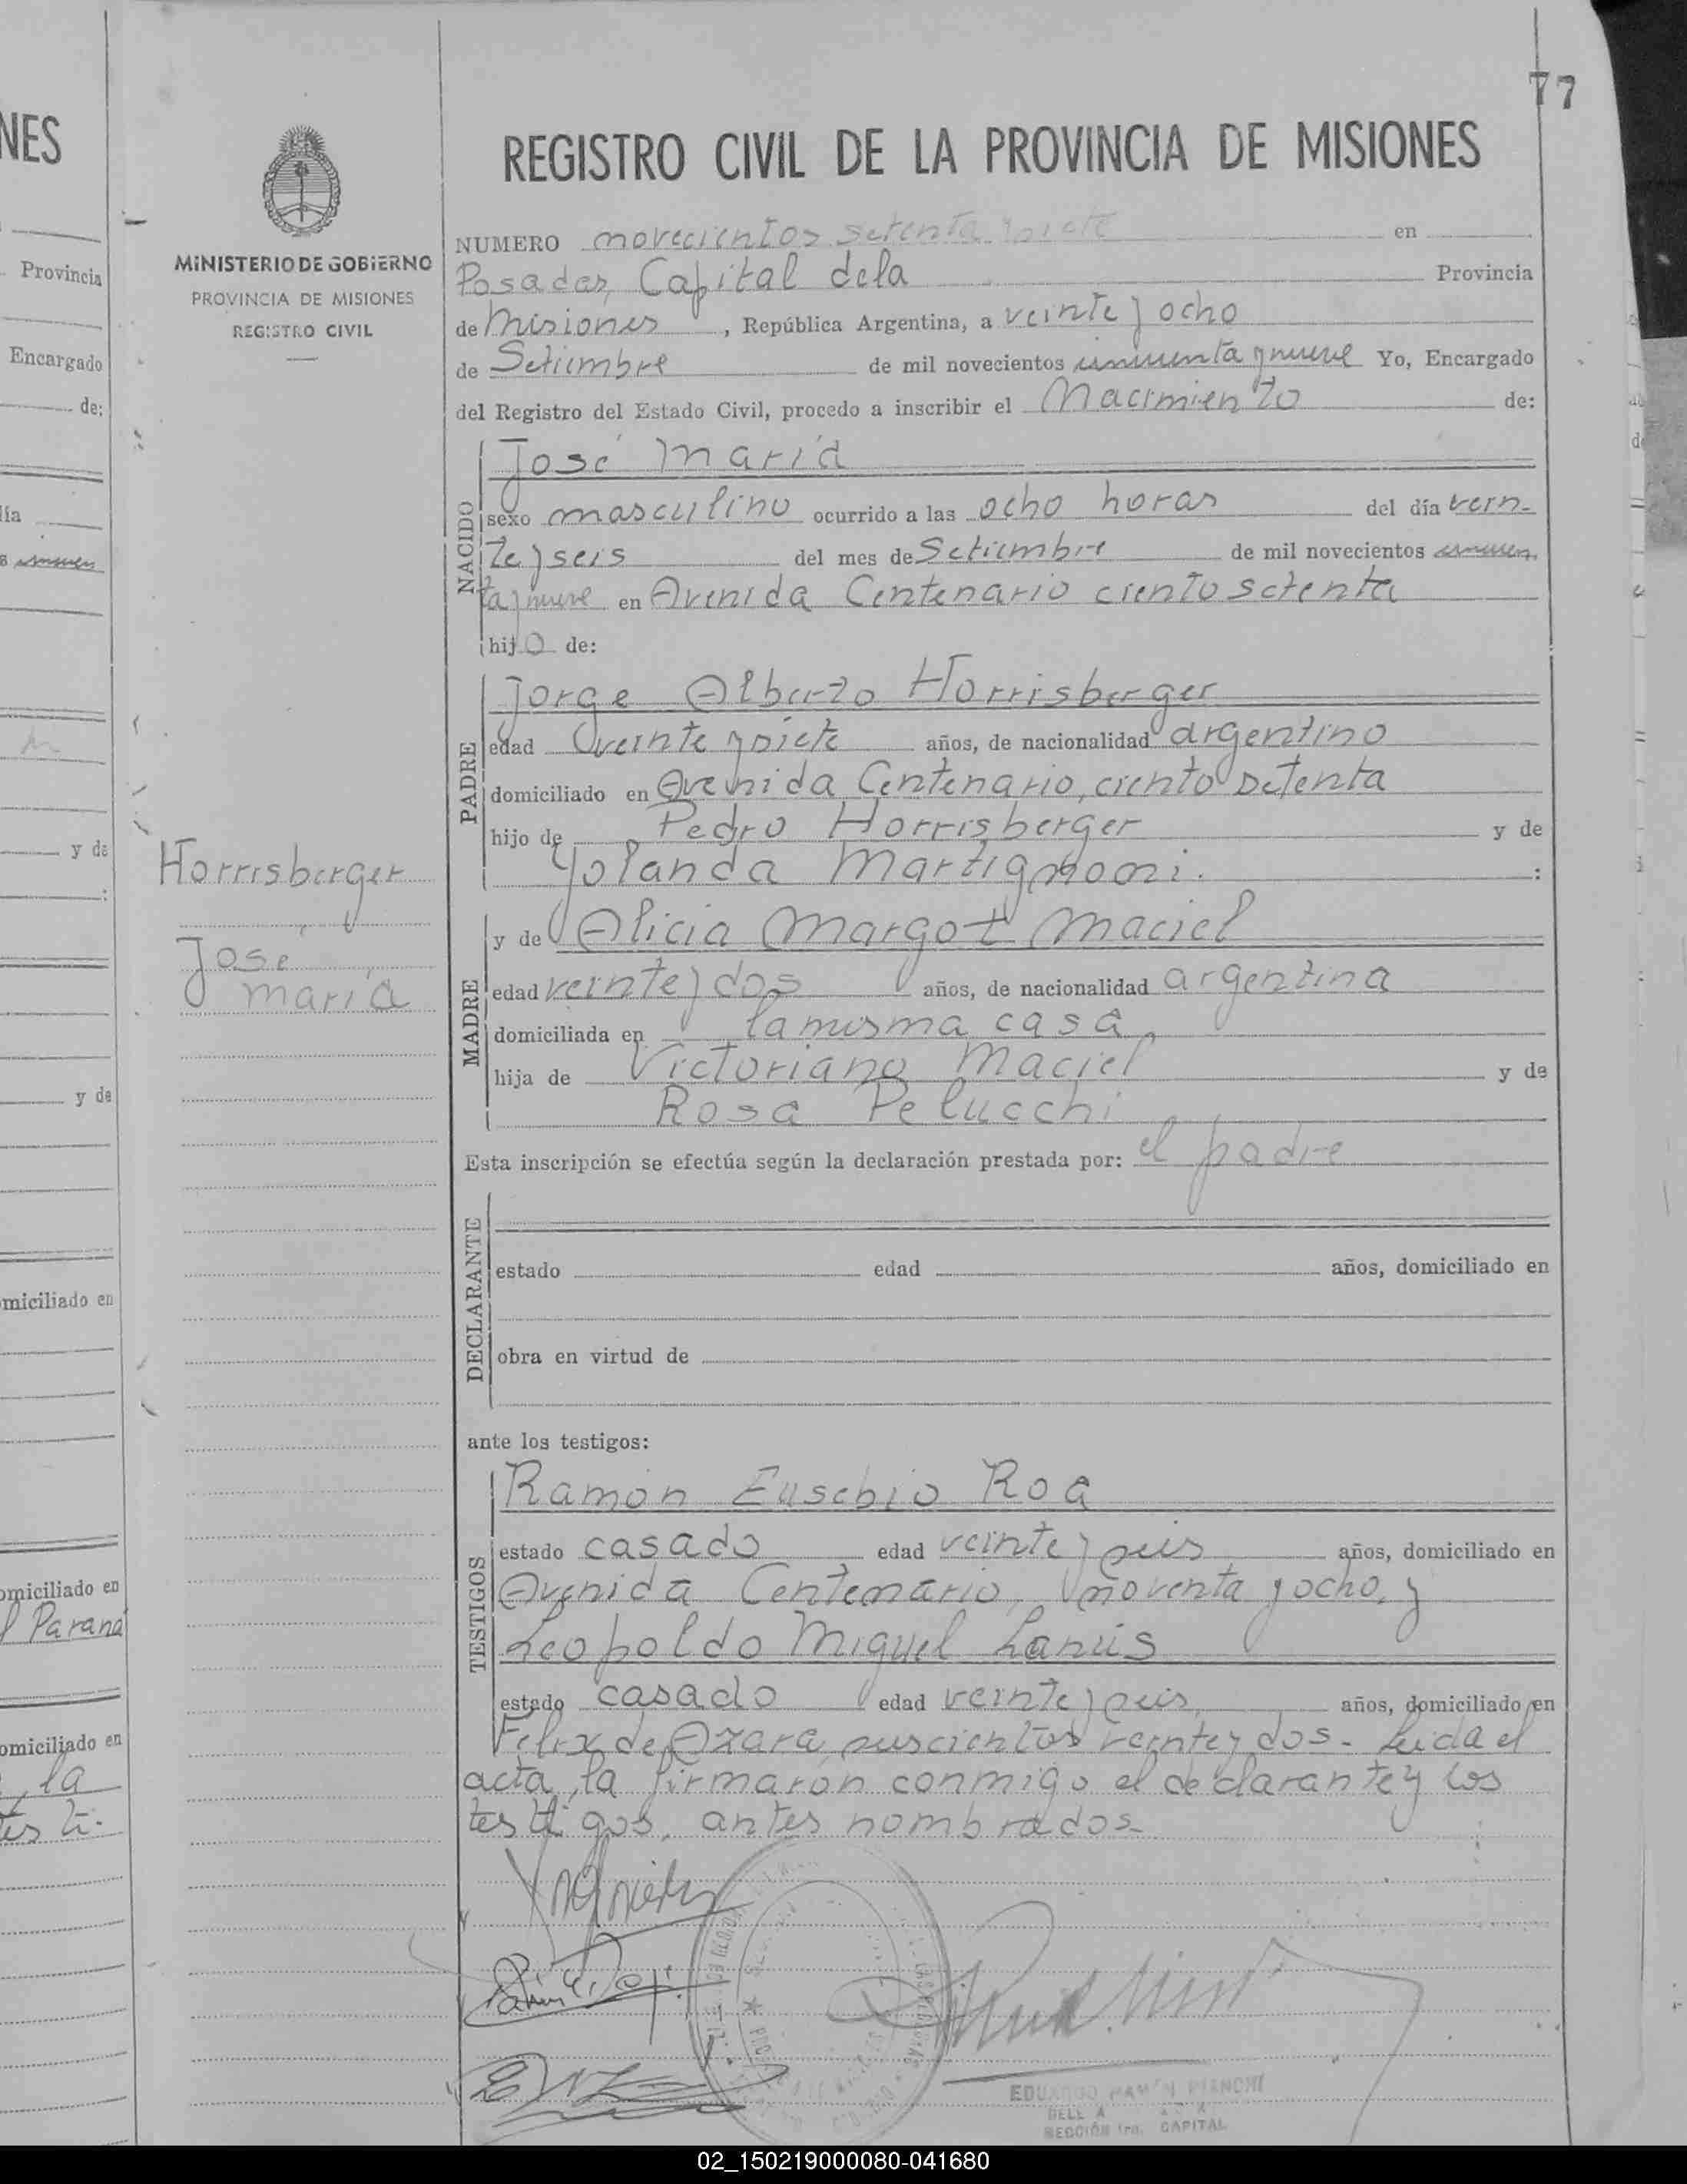 77
NES
REGISTRO CIVIL DE LA PROVINCIA DE MISIONES
MINISTERIO DE GOBIERNO
PROVINCIA DE MISIONES
REGISTRO CIVIL
Provincia
Encargado
de:
y de
y de
omiciliado en
omiciliado en
l Paraná
omiciliado en
, la
Horrisberger
José
maría
NUMERO novecientos setenta y siete en
Posadas, Capital dela Provincia
de Misiones, República Argentina, a veinte y ocho
de Setiembre de mil novecientos cincuenta y nueve Yo, Encargado
del Registro del Estado Civil, procedo a inscribir el Nacimiento de:
NACIDO
José María
sexo masculino ocurrido a las ocho horas del día vein-
te y seis del mes de Setiembre de mil novecientos cincuen
ta y nueve en Avenida Centenario ciento setenta
hijo de:
PADRE
Jorge Alberto Horrisberger
edad veinte y siete años, de nacionalidad argentino
domiciliado en Avenida Centenario, ciento setenta
hijo de Pedro Horrisberger y de
Yolanda Martignoni. :
MADRE
y de Alicia Margot Maciel
edad veinte y dos años, de nacionalidad argentina
domiciliada en la misma casa,
hija de Victoriano Maciel y de
Rosa Pelucchi
Esta inscripción se efectúa según la declaración prestada por: el padre
DECLARANTE
estado edad años, domiciliado en
obra en virtud de
ante los testigos:
TESTIGOS
Ramón Eusebio Roa
estado casado edad veinte y seis años, domiciliado en
Avenida Centenario, noventa y ocho, y
Leopoldo Miguel Lanús
estado casado edad veinte y seis, años, domiciliado en
Felix de Azara seiscientos veinte y dos. Leida el
acta, la firmarón conmigo el declarante y los
testigos, antes nombrados.
EDUARDO RAMÓN BIANCHI
SECCIÓN 1ra. CAPITAL
02_150219000080-041680